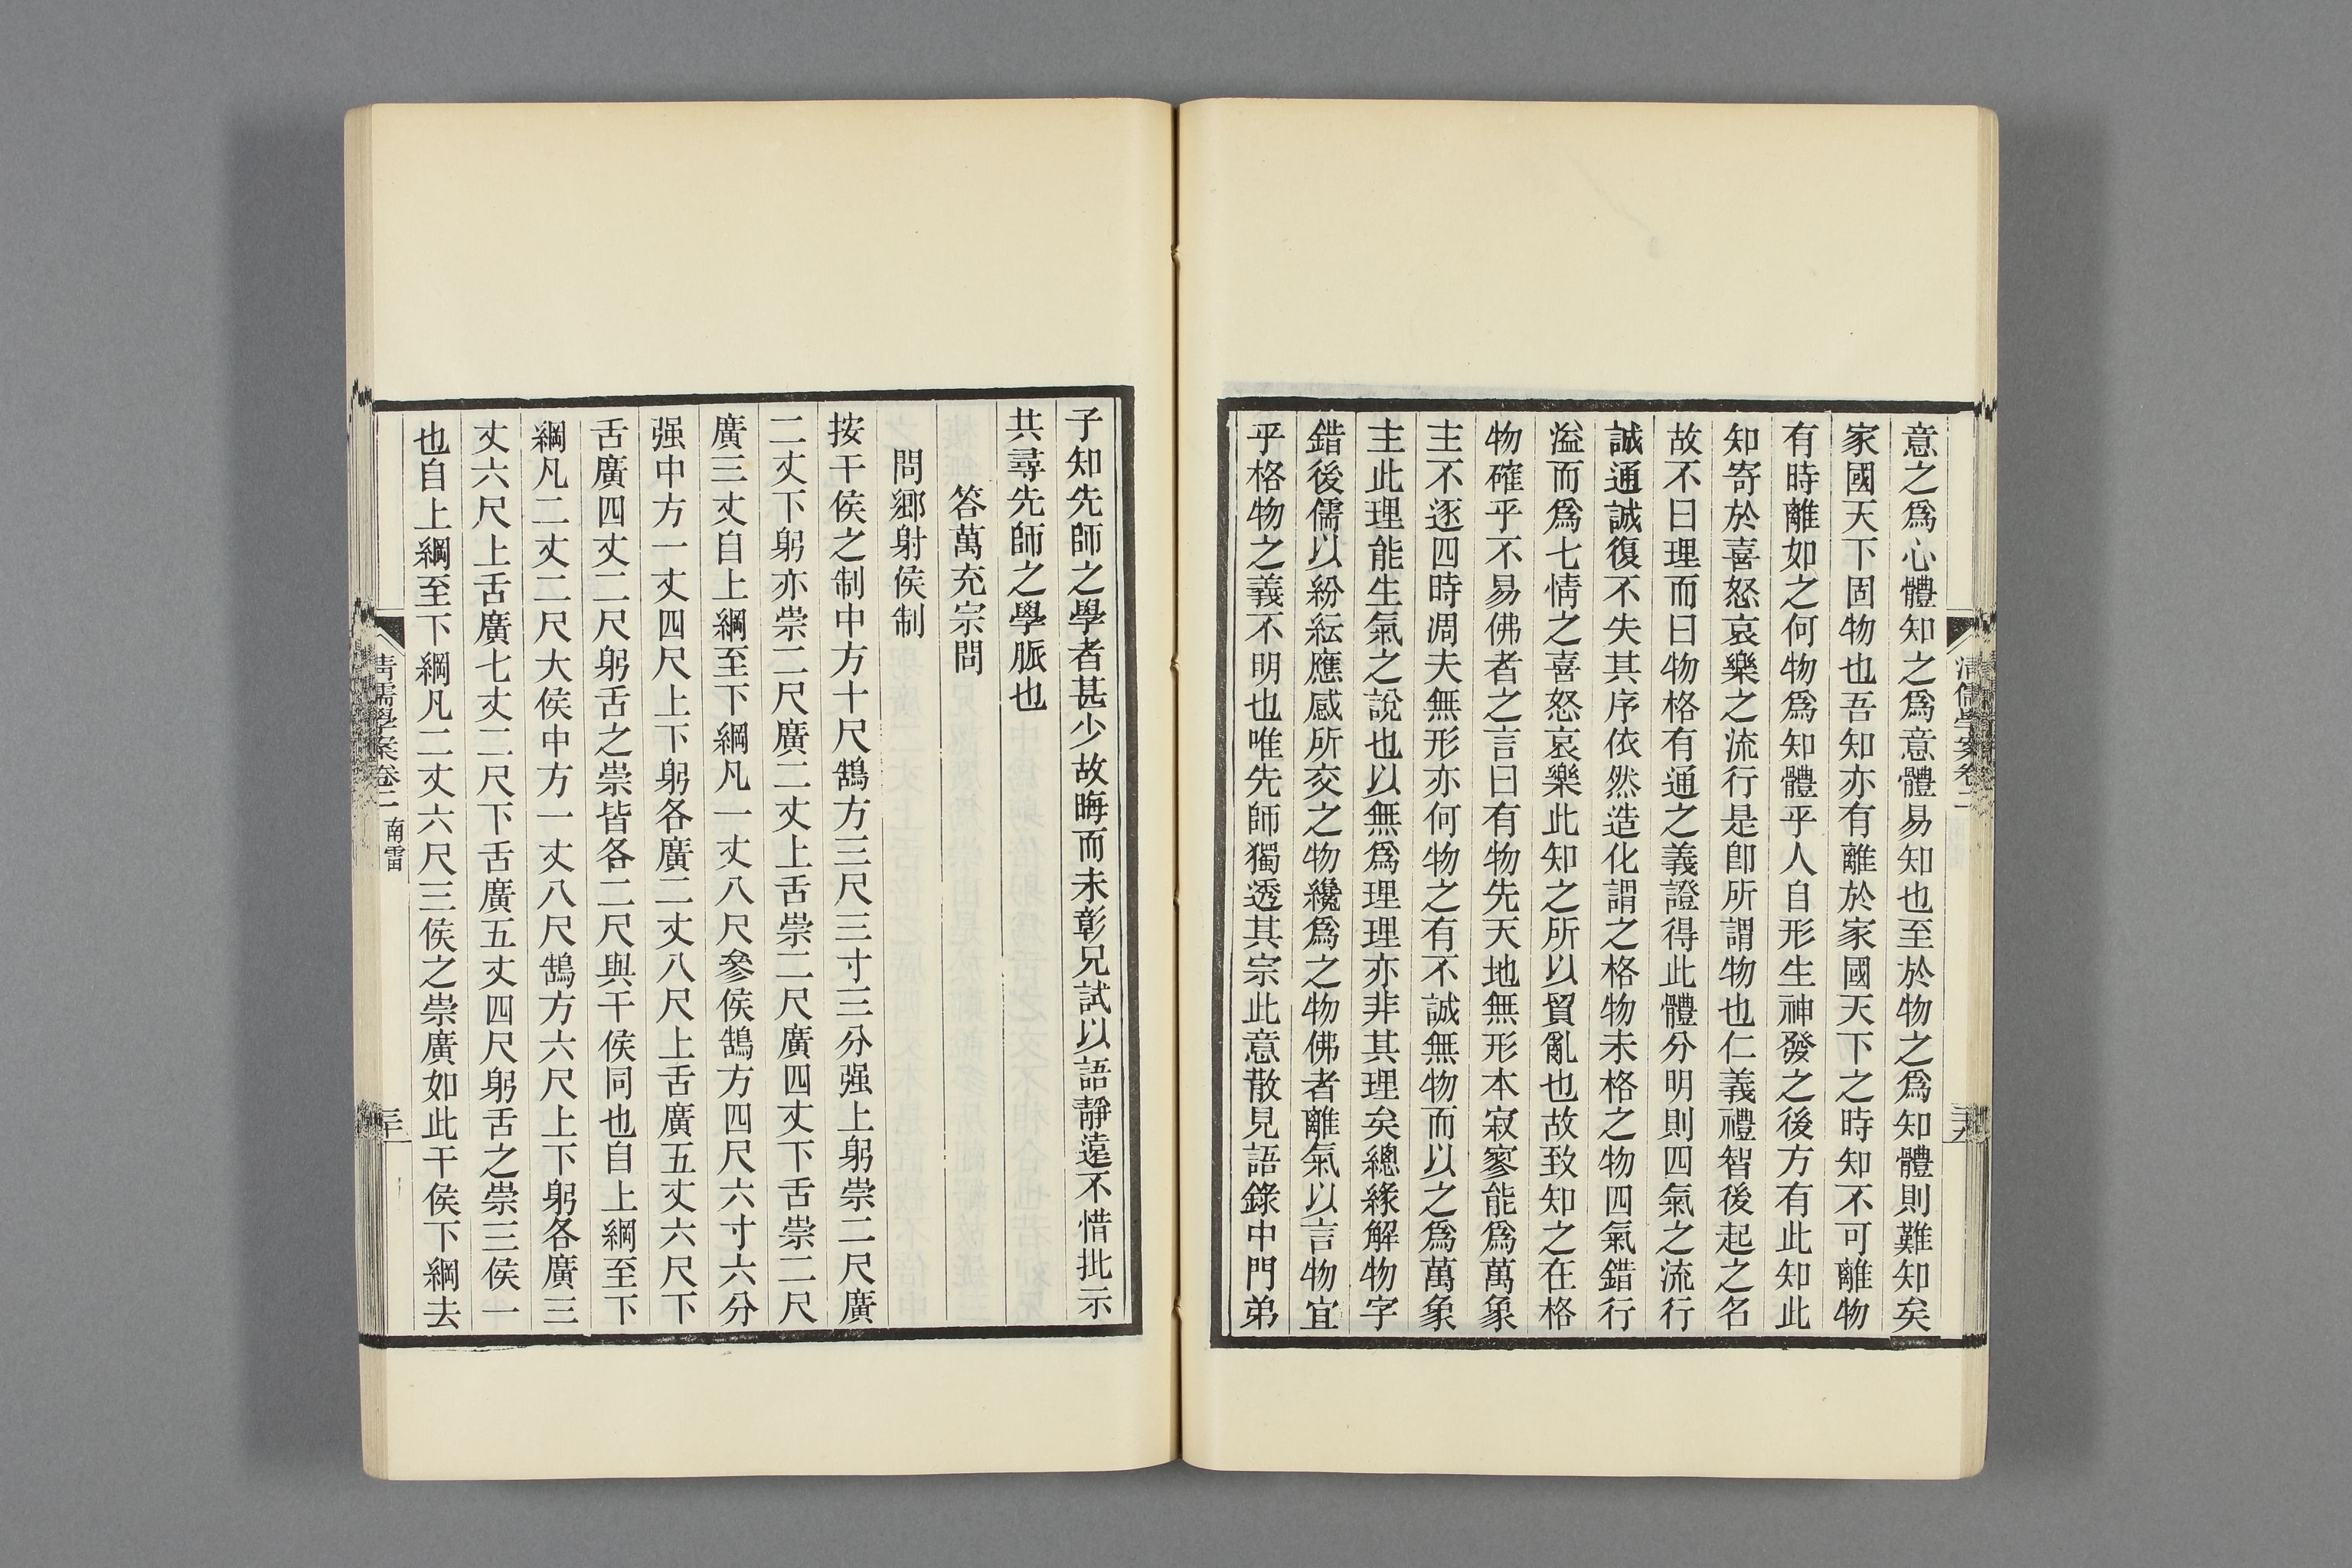 意之爲心體知之爲意體易知也至於物之爲知體則難知矣
家國天下固物也吾知亦有離於家國天下之時知不可離物
有時離如之何物爲知體乎人自形生神發之後方有此知此
知寄於喜怒哀樂之流行是卽所謂物也仁義禮智後起之名
故不曰理而曰物格有通之義證得此體分明則四氣之流行
誠通誠復不失其序依然造化謂之格物未格之物四氣錯行
溢而爲七情之喜怒哀樂此知之所以貿亂也故致知之在格
物確乎不易佛者之言曰有物先天地無形本寂寥能爲萬象
主不逐四時凋夫無形亦何物之有不誠無物而以之爲萬象
主此理能生氣之說也以無爲理理亦非其理矣總緣解物字
錯後儒以紛紜應感所交之物纔爲之物佛者離氣以言物宜
乎格物之義不明也唯先師獨透其宗此意散見語錄中門弟
清儒學案卷二
子知先師之學者甚少故晦而未彰兄試以語靜遠不惜批示
共尋先師之學脈也
答萬充宗問
問鄉射侯制
按干侯之制中方十尺鵠方三尺三寸三分强上躬崇二尺廣
二丈下躬亦崇二尺廣二丈上舌崇二尺廣四丈下舌崇二尺
廣三丈自上綱至下綱凡一丈八尺參侯鵠方四尺六寸六分
强中方一丈四尺上下躬各廣二丈八尺上舌廣五丈六尺下
舌廣四丈二尺躬舌之崇皆各二尺與干侯同也自上綱至下
綱凡二丈二尺大侯中方一丈八尺鵠方六尺上下躬各廣三
丈六尺上舌廣七丈二尺下舌廣五丈四尺躬舌之崇三侯一
也自上綱至下綱凡二丈六尺三侯之崇廣如此干侯下綱去
清儒學案卷二 南雷